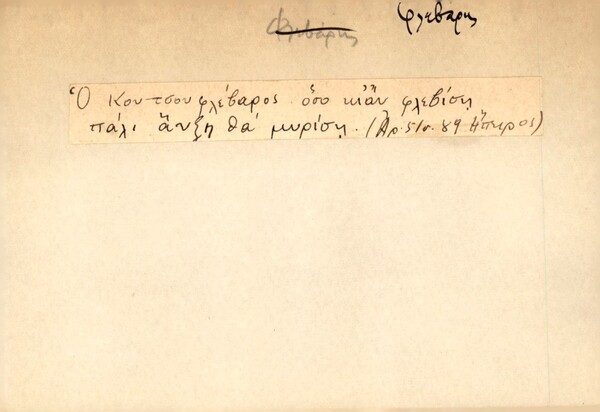 Φλεβάρης
φλεβάρης
Ὁ Κουτσουφλέβαρος ὅσο κι' ἂν φλεβίση
πάλι ἄνξη θὰ μυρίση. (Ἀρ. 51 σ. 89 Ἤπειρος)